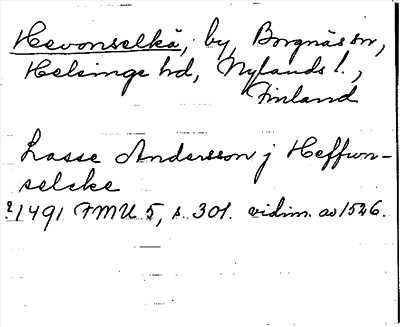 Hevonselkä, by, Borgnäs sn,
Helsinge hd, Nylands l.,
Finland
Lasse Andersson j Heffwn-
selcke
1491 FMU 5, s. 301. vidim. av 1546.